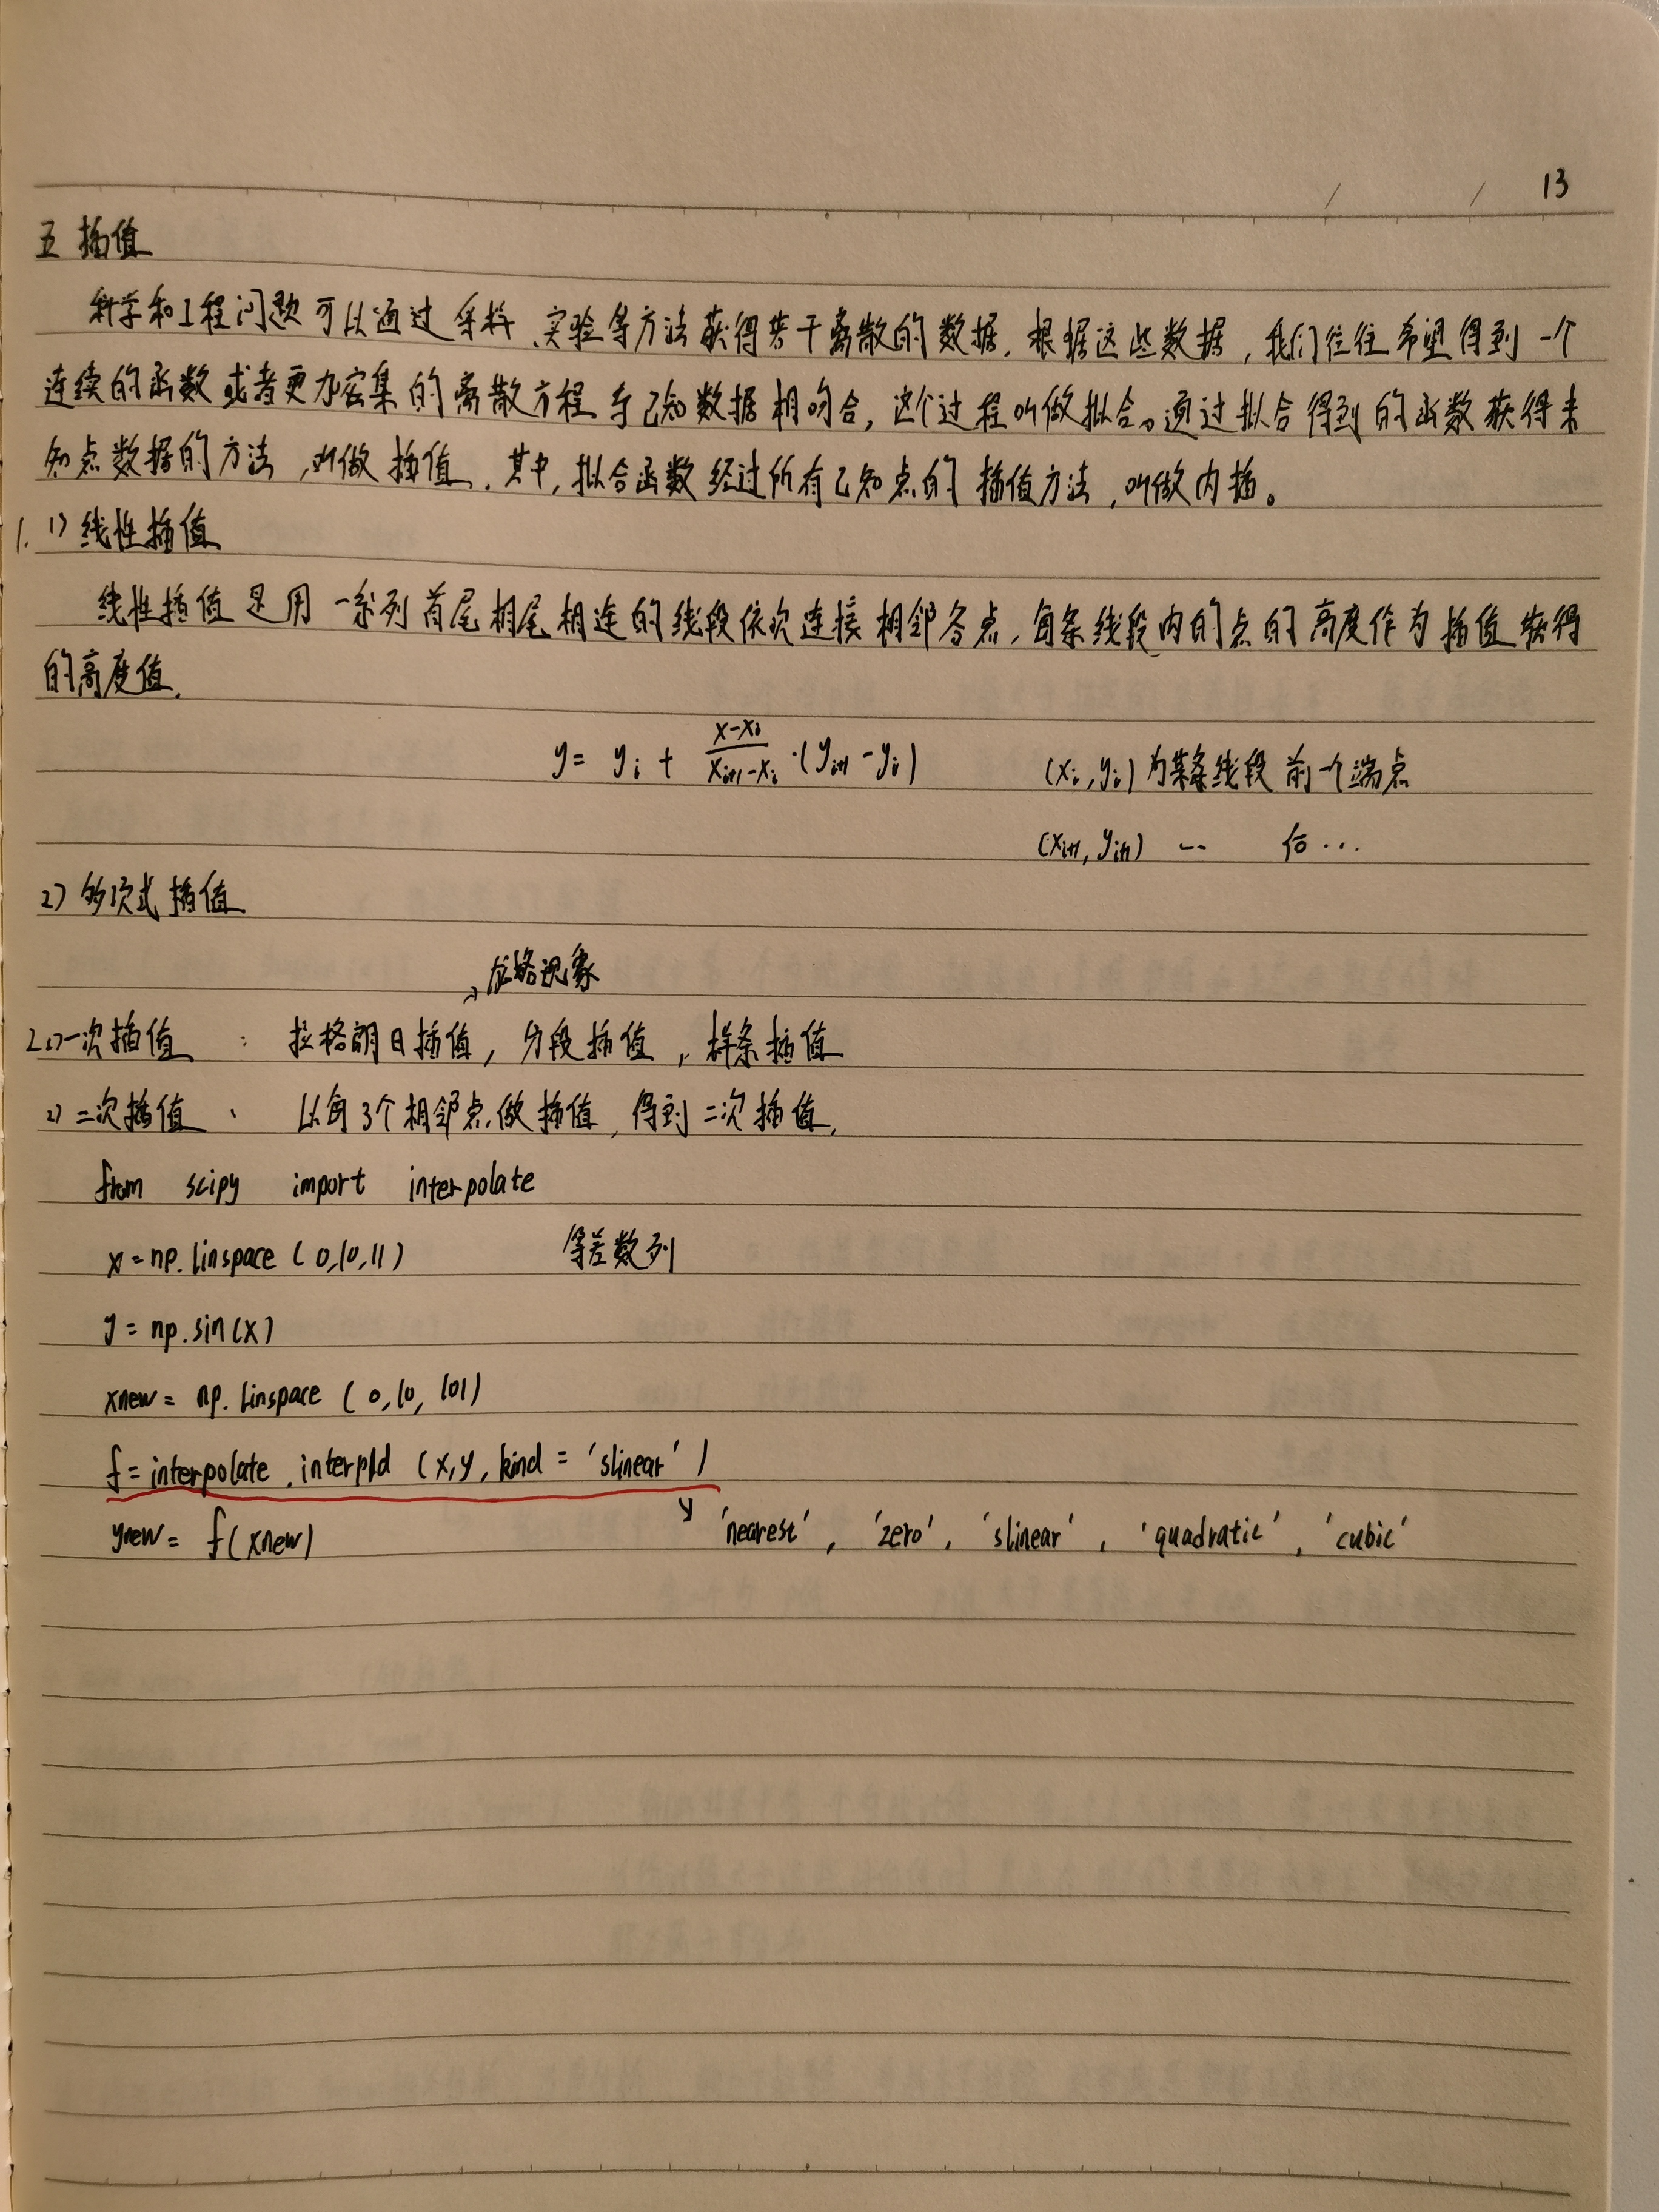 13
五 插值
科学和工程问题可以通过采样、实验等方法获得若干离散的数据. 根据这些数据, 我们往往希望得到一个
连续的函数或者更加密集的离散方程与已知数据相吻合, 这个过程叫做拟合。通过拟合得到的函数获得未
知点数据的方法, 叫做插值. 其中, 拟合函数经过所有已知点的插值方法, 叫做内插。
1. 1) 线性插值
线性插值是用一系列首尾相尾相连的线段依次连接相邻各点, 每条线段内的点的高度作为插值获得
的高度值.
y = yi + (x-xi)/(xi+1-xi) · (yi+1 - yi) (xi, yi) 为某条线段前一个端点
(xi+1, yi+1) ... 后 ...
2) 多项式插值
龙格现象
2.1) 一次插值 : 拉格朗日插值, 分段插值, 样条插值
2) 二次插值 、 以每3个相邻点做插值, 得到二次插值.
from scipy import interpolate
x = np.linspace (0,10,11) 等差数列
y = np.sin(x)
xnew = np.linspace (0,10, 101)
f = interpolate.interp1d (x,y, kind = 'slinear')
ynew = f(xnew) 'nearest', 'zero', 'slinear', 'quadratic', 'cubic'